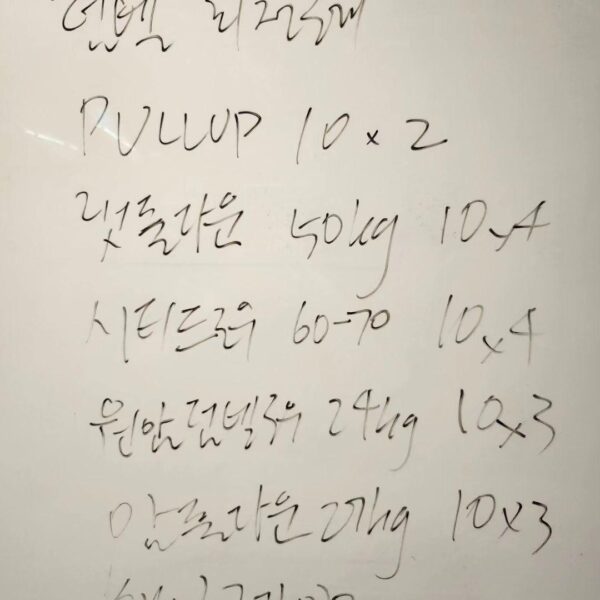 PULLUP 10 x 2
랫풀다운 50kg 10x4
시티드로우 60-70 10x4
원암덤벨로우 24kg 10x3
암풀다운 27kg 10x3